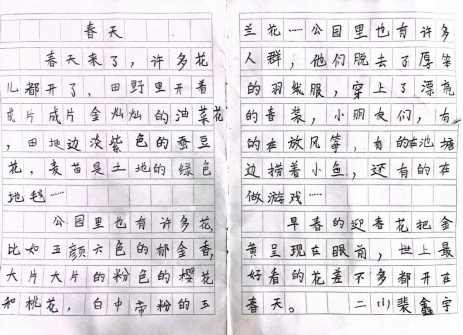 春天
春天来了，许多花
儿都开了，田野里开着
成片成片金灿灿的油菜花
，田地边淡紫色的蚕豆
花，麦苗是土地的绿色
地毯……
公园里也有许多花，
比如五颜六色的郁金香，
大片大片的粉色的樱花
和桃花，白中带粉的玉
兰花……公园里也有许多
人群，他们脱去了厚笨
的羽绒服，穿上了漂亮
的春装，小朋友们，有
的在放风筝，有的在池塘
边捞着小鱼，还有的在
做游戏……
早春的迎春花把金
黄呈现在眼前，世上最
好看的花差不多都开在
春天。 二小裴鑫宇